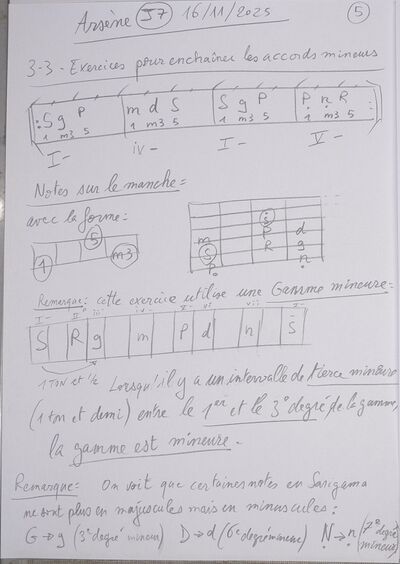 Arsène J7 16/11/2025 5
3-3- Exercices pour enchaîner les accords mineurs
: S g P | m d S | S g P | P n R :
1 m3 5 1 m3 5 1 m3 5 1 m3 5
I- iv- I- V-
Notes sur le manche =
avec la forme =
1 5 m3
S
P d
m
S R g
P n
Remarque: cette exercice utilise une Gamme mineure =
S R g m P d n S
1 TON et ½ Lorsqu'il y a un intervalle de tierce mineure
(1 ton et demi) entre le 1er et le 3° degré de la gamme,
la gamme est mineure.
Remarque = On voit que certaines notes en Sarigama
ne sont plus en majuscules mais en minuscules :
G → g (3° degré mineur) D → d (6° degré mineur) N → n (7° degré mineur)